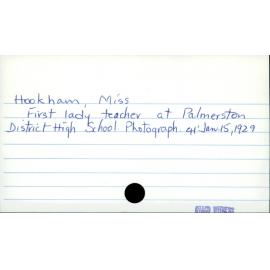 Hookham, Miss
First lady teacher at Palmerston
District High School Photograph. 41' Jan. 15, 1929